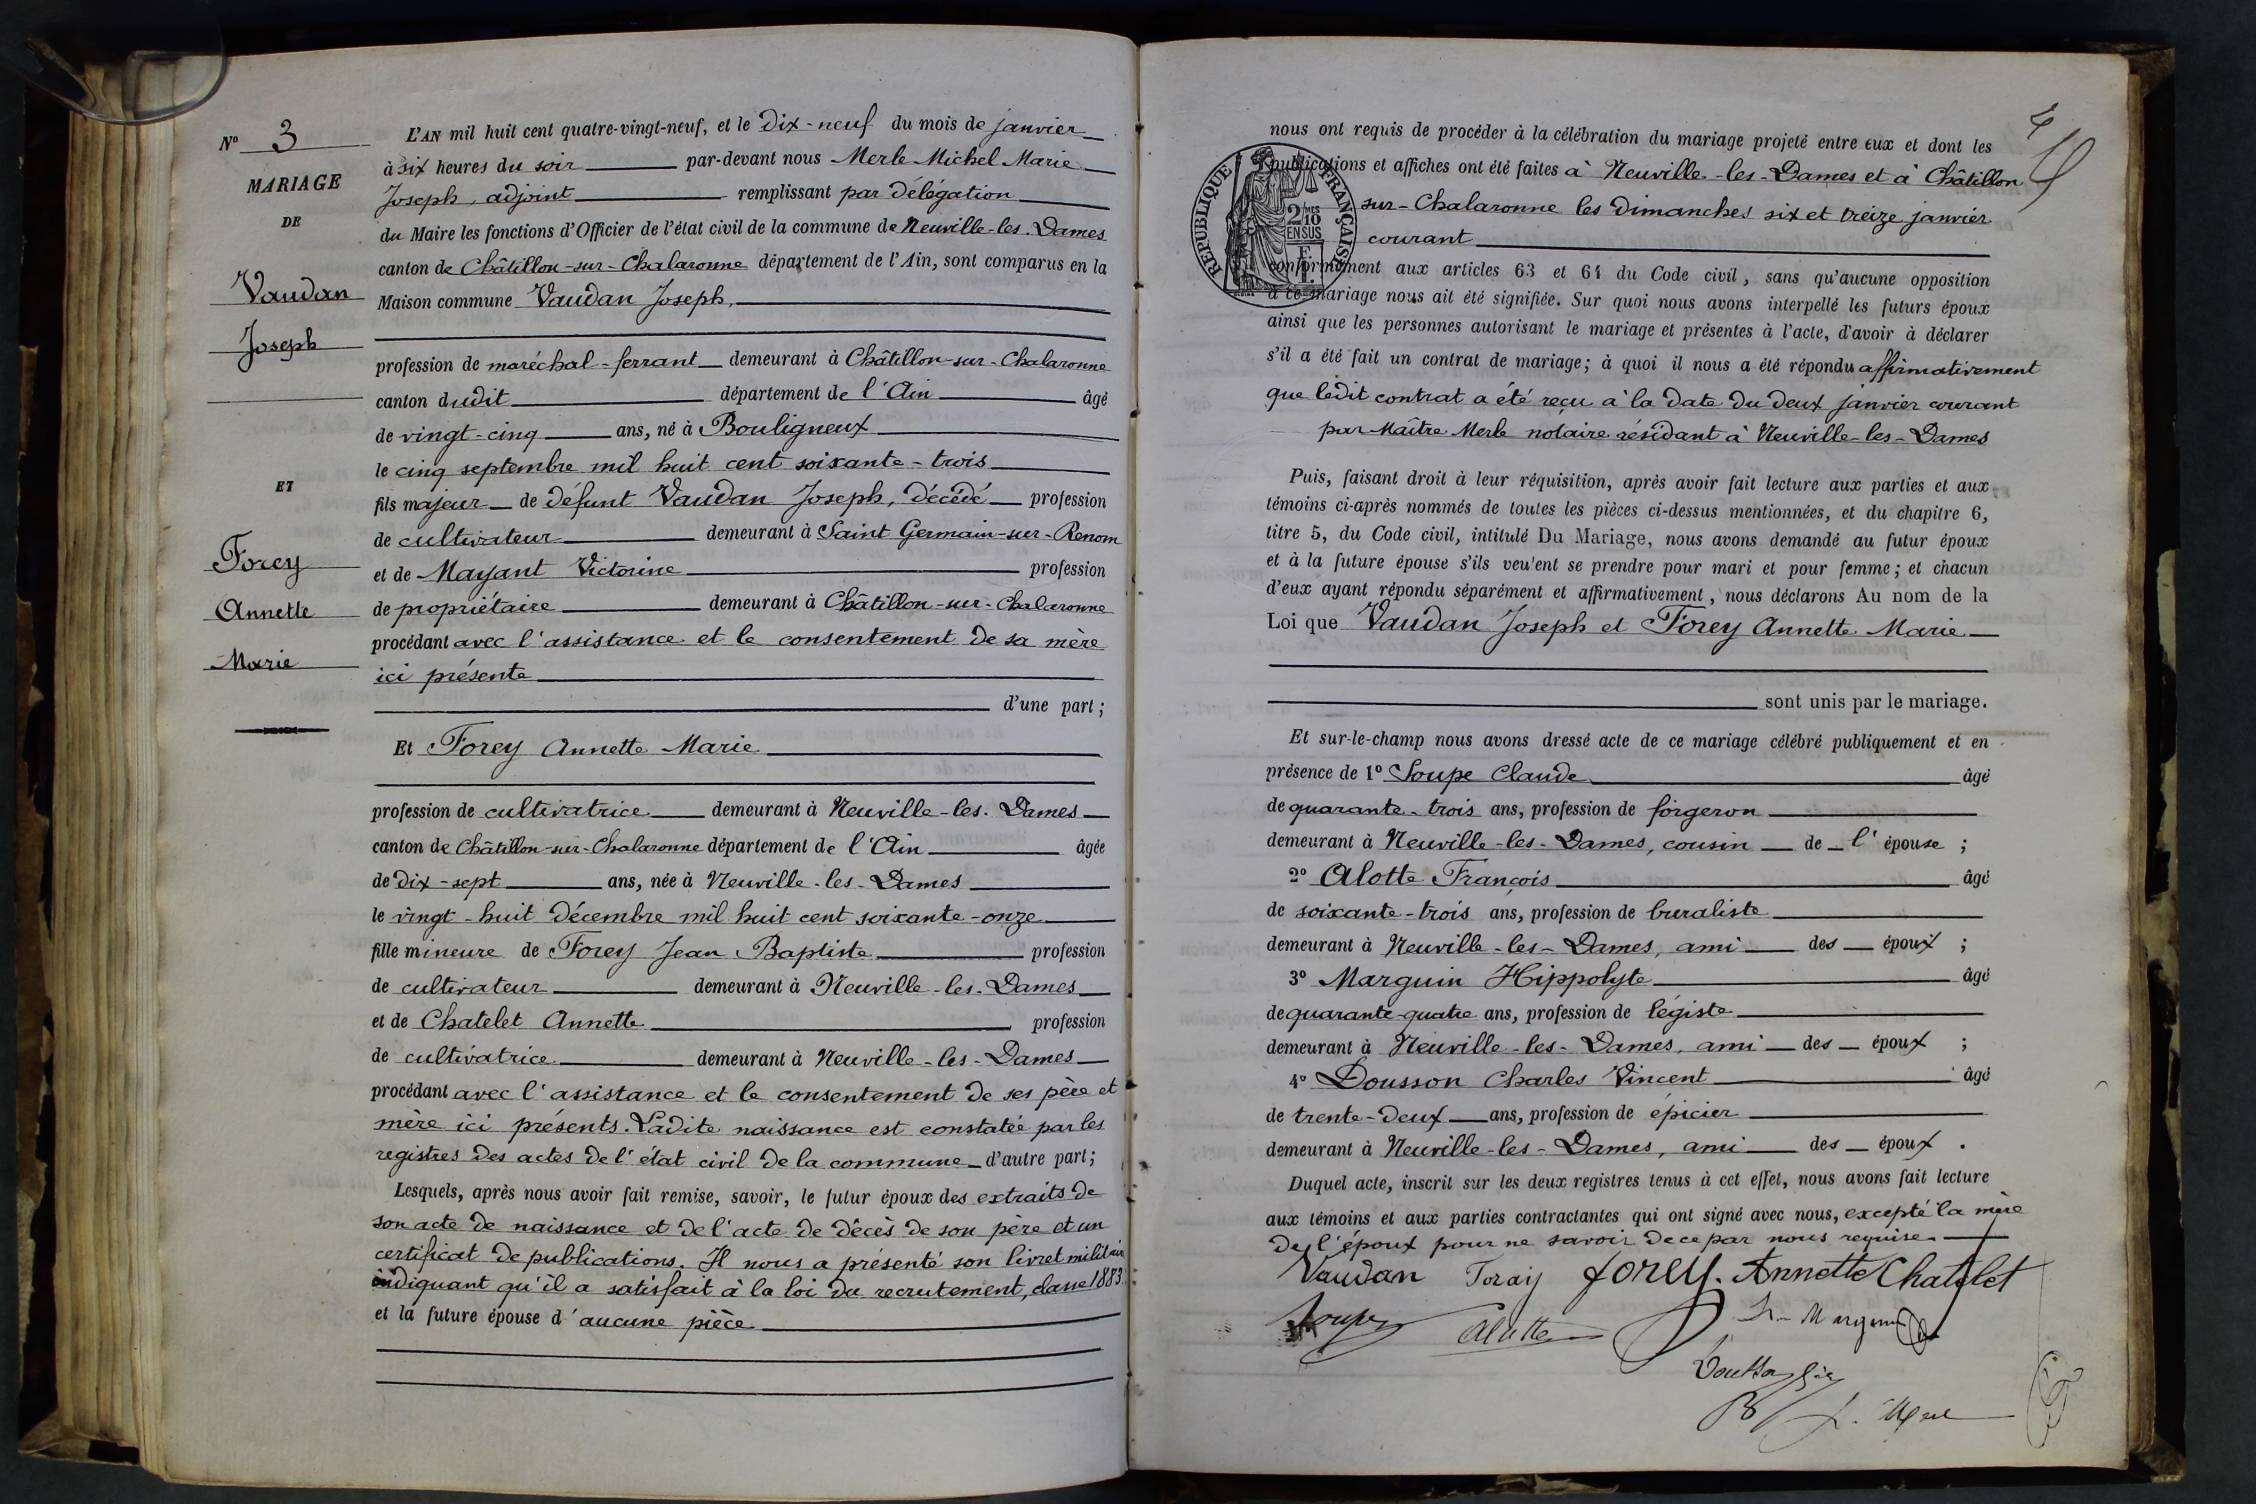 N° 3
MARIAGE
DE
Vaudan
Joseph
ET
Forey
Annette
Marie
L'AN mil huit cent quatre-vingt-neuf, et le dix-neuf du mois de janvier
à six heures du soir par-devant nous Merle Michel Marie
Joseph, adjoint remplissant par délégation
du Maire les fonctions d'Officier de l'état civil de la commune de Neuville-les-Dames
canton de Châtillon-sur-Chalaronne département de l'Ain, sont comparus en la
Maison commune Vaudan Joseph,
profession de maréchal-ferrant demeurant à Châtillon-sur-Chalaronne
canton dudit département de l'Ain âgé
de vingt-cinq ans, né à Bouligneux
le cinq septembre mil huit cent soixante-trois
fils majeur de défunt Vaudan Joseph, décédé profession
de cultivateur demeurant à Saint Germain-sur-Renom
et de Mayant Victorine profession
de propriétaire demeurant à Châtillon-sur-Chalaronne
procédant avec l'assistance et le consentement de sa mère
ici présente
d'une part;
Et Forey Annette Marie
profession de cultivatrice demeurant à Neuville-les-Dames
canton de Châtillon-sur-Chalaronne département de l'Ain âgée
de dix-sept ans, née à Neuville-les-Dames
le vingt-huit décembre mil huit cent soixante-onze
fille mineure de Forey Jean Baptiste profession
de cultivateur demeurant à Neuville-les-Dames
et de Chatelet Annette profession
de cultivatrice demeurant à Neuville-les-Dames
procédant avec l'assistance et le consentement de ses père et
mère ici présents. Ladite naissance est constatée par les
registres des actes de l'état civil de la commune d'autre part;
Lesquels, après nous avoir fait remise, savoir, le futur époux des extraits de
son acte de naissance et de l'acte de décès de son père et un
certificat de publications. Il nous a présenté son livret militaire
indiquant qu'il a satisfait à la loi du recrutement, classe 1883
et la future épouse d'aucune pièce
4
nous ont requis de procéder à la célébration du mariage projeté entre eux et dont les
publications et affiches ont été faites à Neuville-les-Dames et à Châtillon
sur-Chalaronne les dimanches six et treize janvier
courant
RÉPUBLIQUE FRANÇAISE
2/10
EN SUS
conformément aux articles 63 et 64 du Code civil, sans qu'aucune opposition
à ce mariage nous ait été signifiée. Sur quoi nous avons interpellé les futurs époux
ainsi que les personnes autorisant le mariage et présentes à l'acte, d'avoir à déclarer
s'il a été fait un contrat de mariage; à quoi il nous a été répondu affirmativement
que ledit contrat a été reçu à la date du deux janvier courant
par Maître Merle notaire résidant à Neuville-les-Dames
Puis, faisant droit à leur réquisition, après avoir fait lecture aux parties et aux
témoins ci-après nommés de toutes les pièces ci-dessus mentionnées, et du chapitre 6,
titre 5, du Code civil, intitulé Du Mariage, nous avons demandé au futur époux
et à la future épouse s'ils veulent se prendre pour mari et pour femme; et chacun
d'eux ayant répondu séparément et affirmativement, nous déclarons Au nom de la
Loi que Vaudan Joseph et Forey Annette Marie
sont unis par le mariage.
Et sur-le-champ nous avons dressé acte de ce mariage célébré publiquement et en
présence de 1° Soupe Claude âgé
de quarante-trois ans, profession de forgeron
demeurant à Neuville-les-Dames, cousin de l'épouse;
2° Alotte François âgé
de soixante-trois ans, profession de buraliste
demeurant à Neuville-les-Dames, ami des époux;
3° Marguin Hippolyte âgé
de quarante-quatre ans, profession de légiste
demeurant à Neuville-les-Dames, ami des époux;
4° Dousson Charles Vincent âgé
de trente-deux ans, profession de épicier
demeurant à Neuville-les-Dames, ami des époux.
Duquel acte, inscrit sur les deux registres tenus à cet effet, nous avons fait lecture
aux témoins et aux parties contractantes qui ont signé avec nous, excepté la mère
de l'époux pour ne savoir de ce par nous requise
Vaudan Foray forey. Annette Chatelet
Soupe Alotte H. Marguin